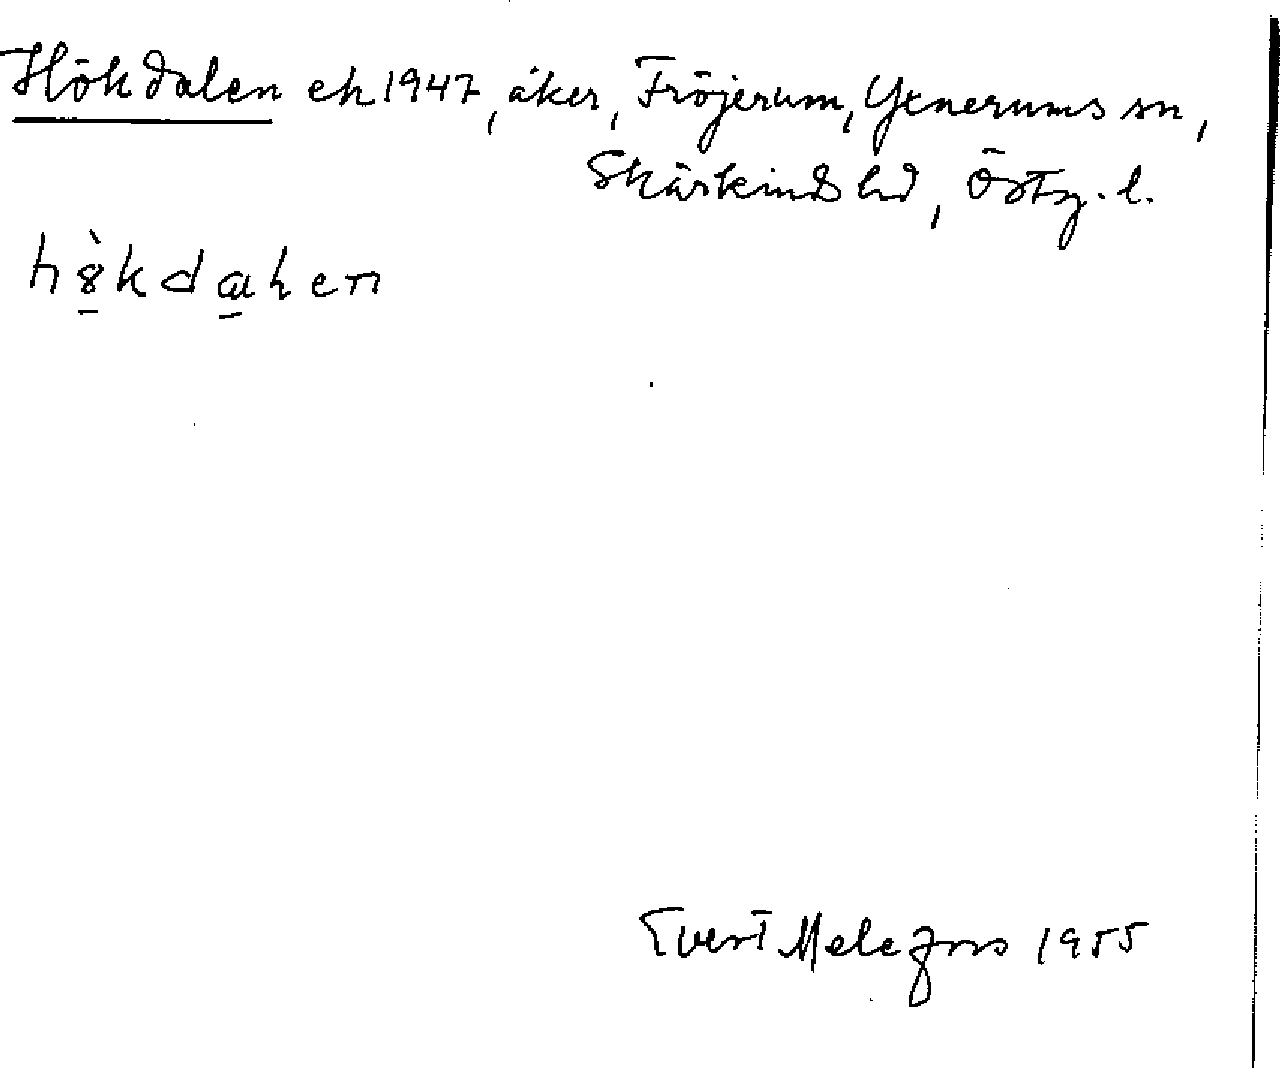 Hökdalen ek 1947, åker, Fröjerum, Yxnerums sn,
Skärkinds hd, Östg. l.
Evert Melefors 1955